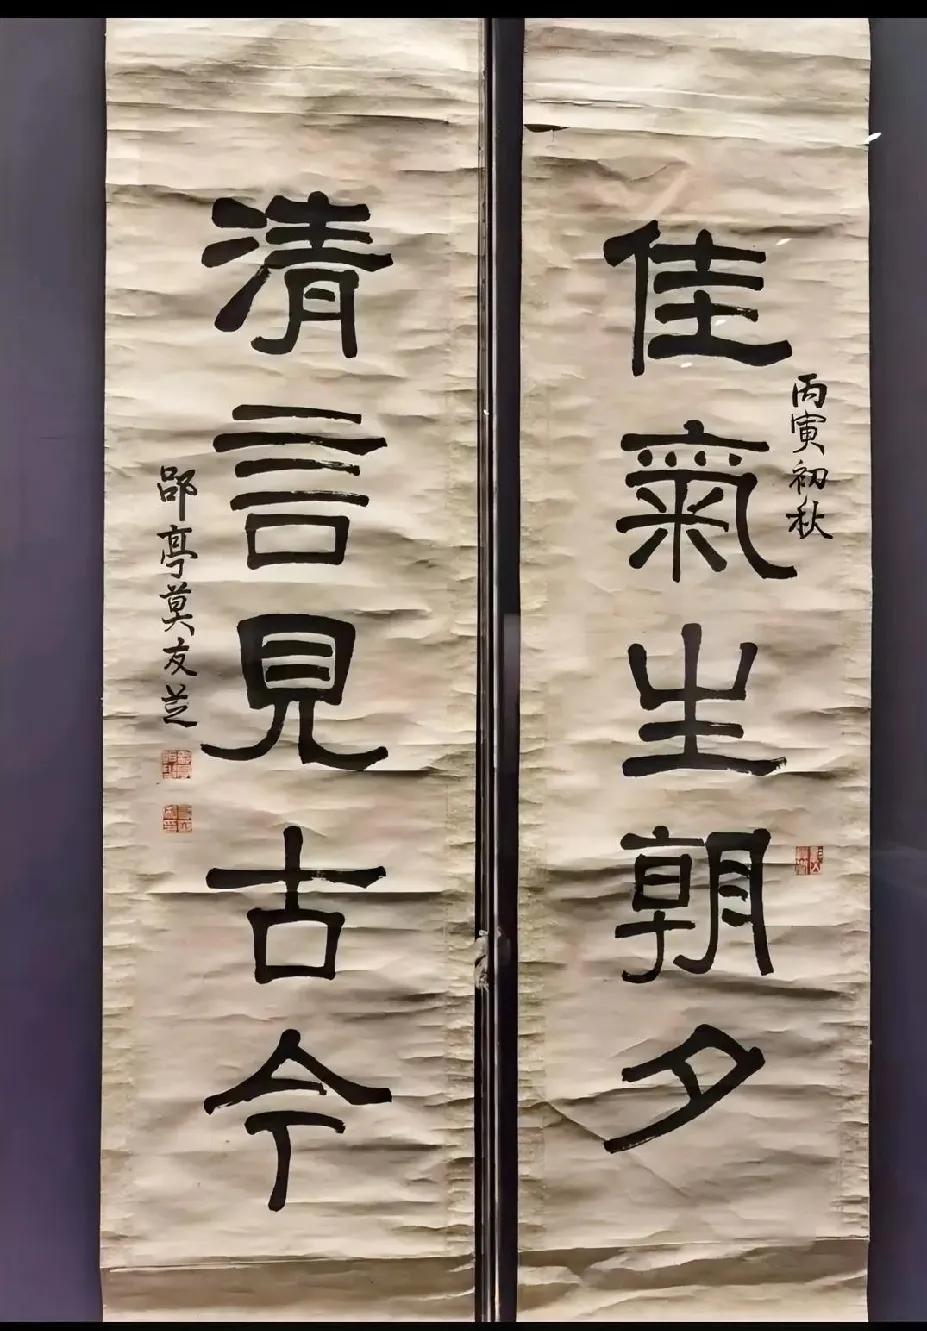 佳氣生朝夕
丙寅初秋
清言見古今
郘亭莫友芝